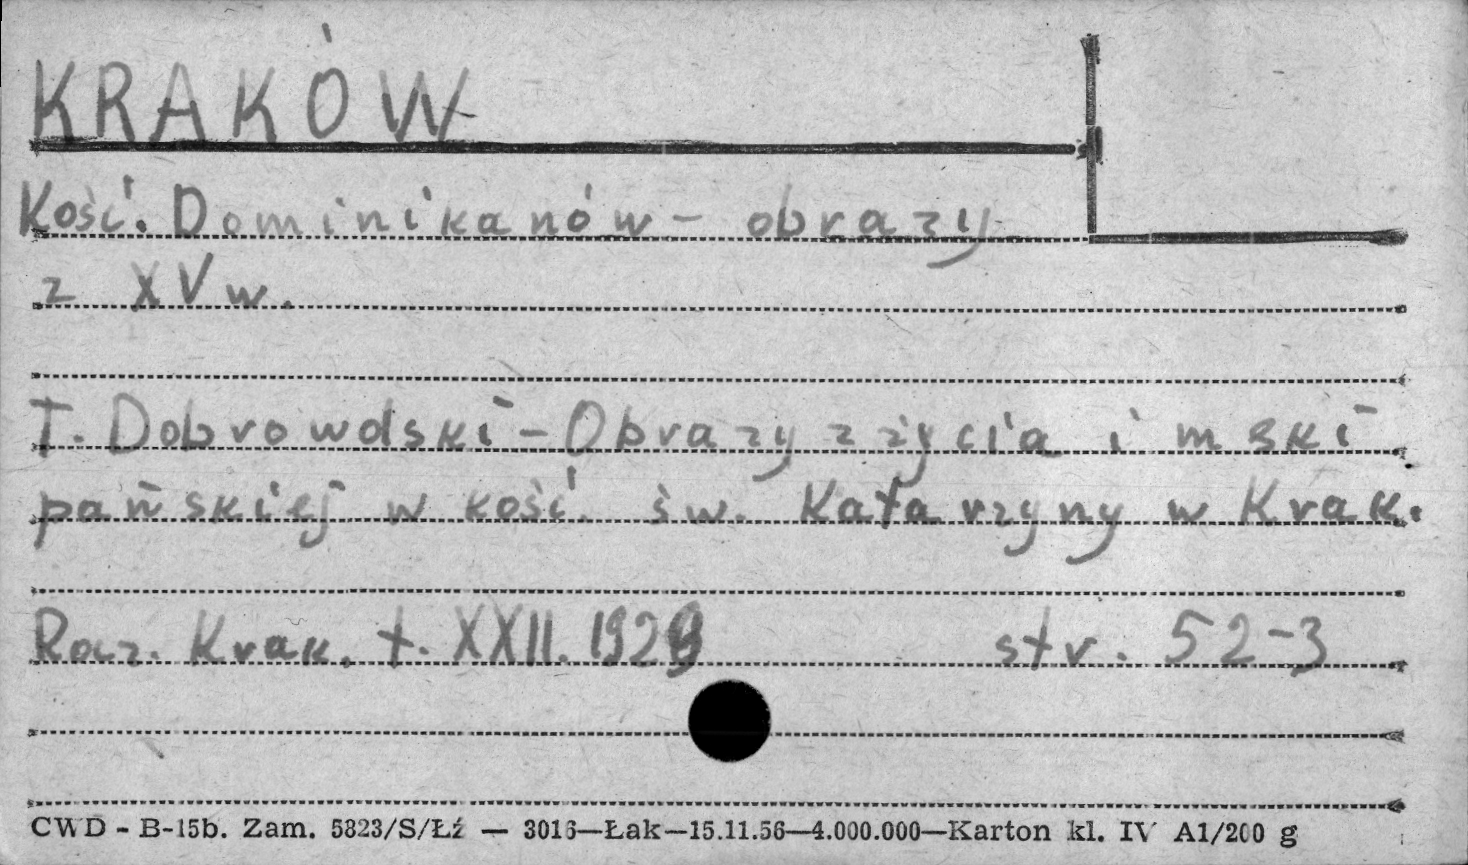 KRAKÓW
Kość. Dominikanów - obrazy
z XV w.
T. Dobrowolski - Obrazy z życia i męki
pańskiej w kość. św. Katarzyny w Krak.
Rocz. Krak. t. XXII. 1929 str. 52-3
CWD - B-15b. Zam. 5823/S/Łź — 3016—Łak—15.11.56—4.000.000—Karton kl. IV A1/200 g